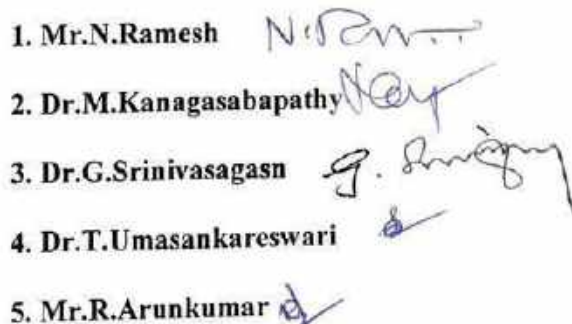 1. Mr.N.Ramesh
2. Dr.M.Kanagasabapathy
3. Dr.G.Srinivasagasn
4. Dr.T.Umasankareswari
5. Mr.R.Arunkumar